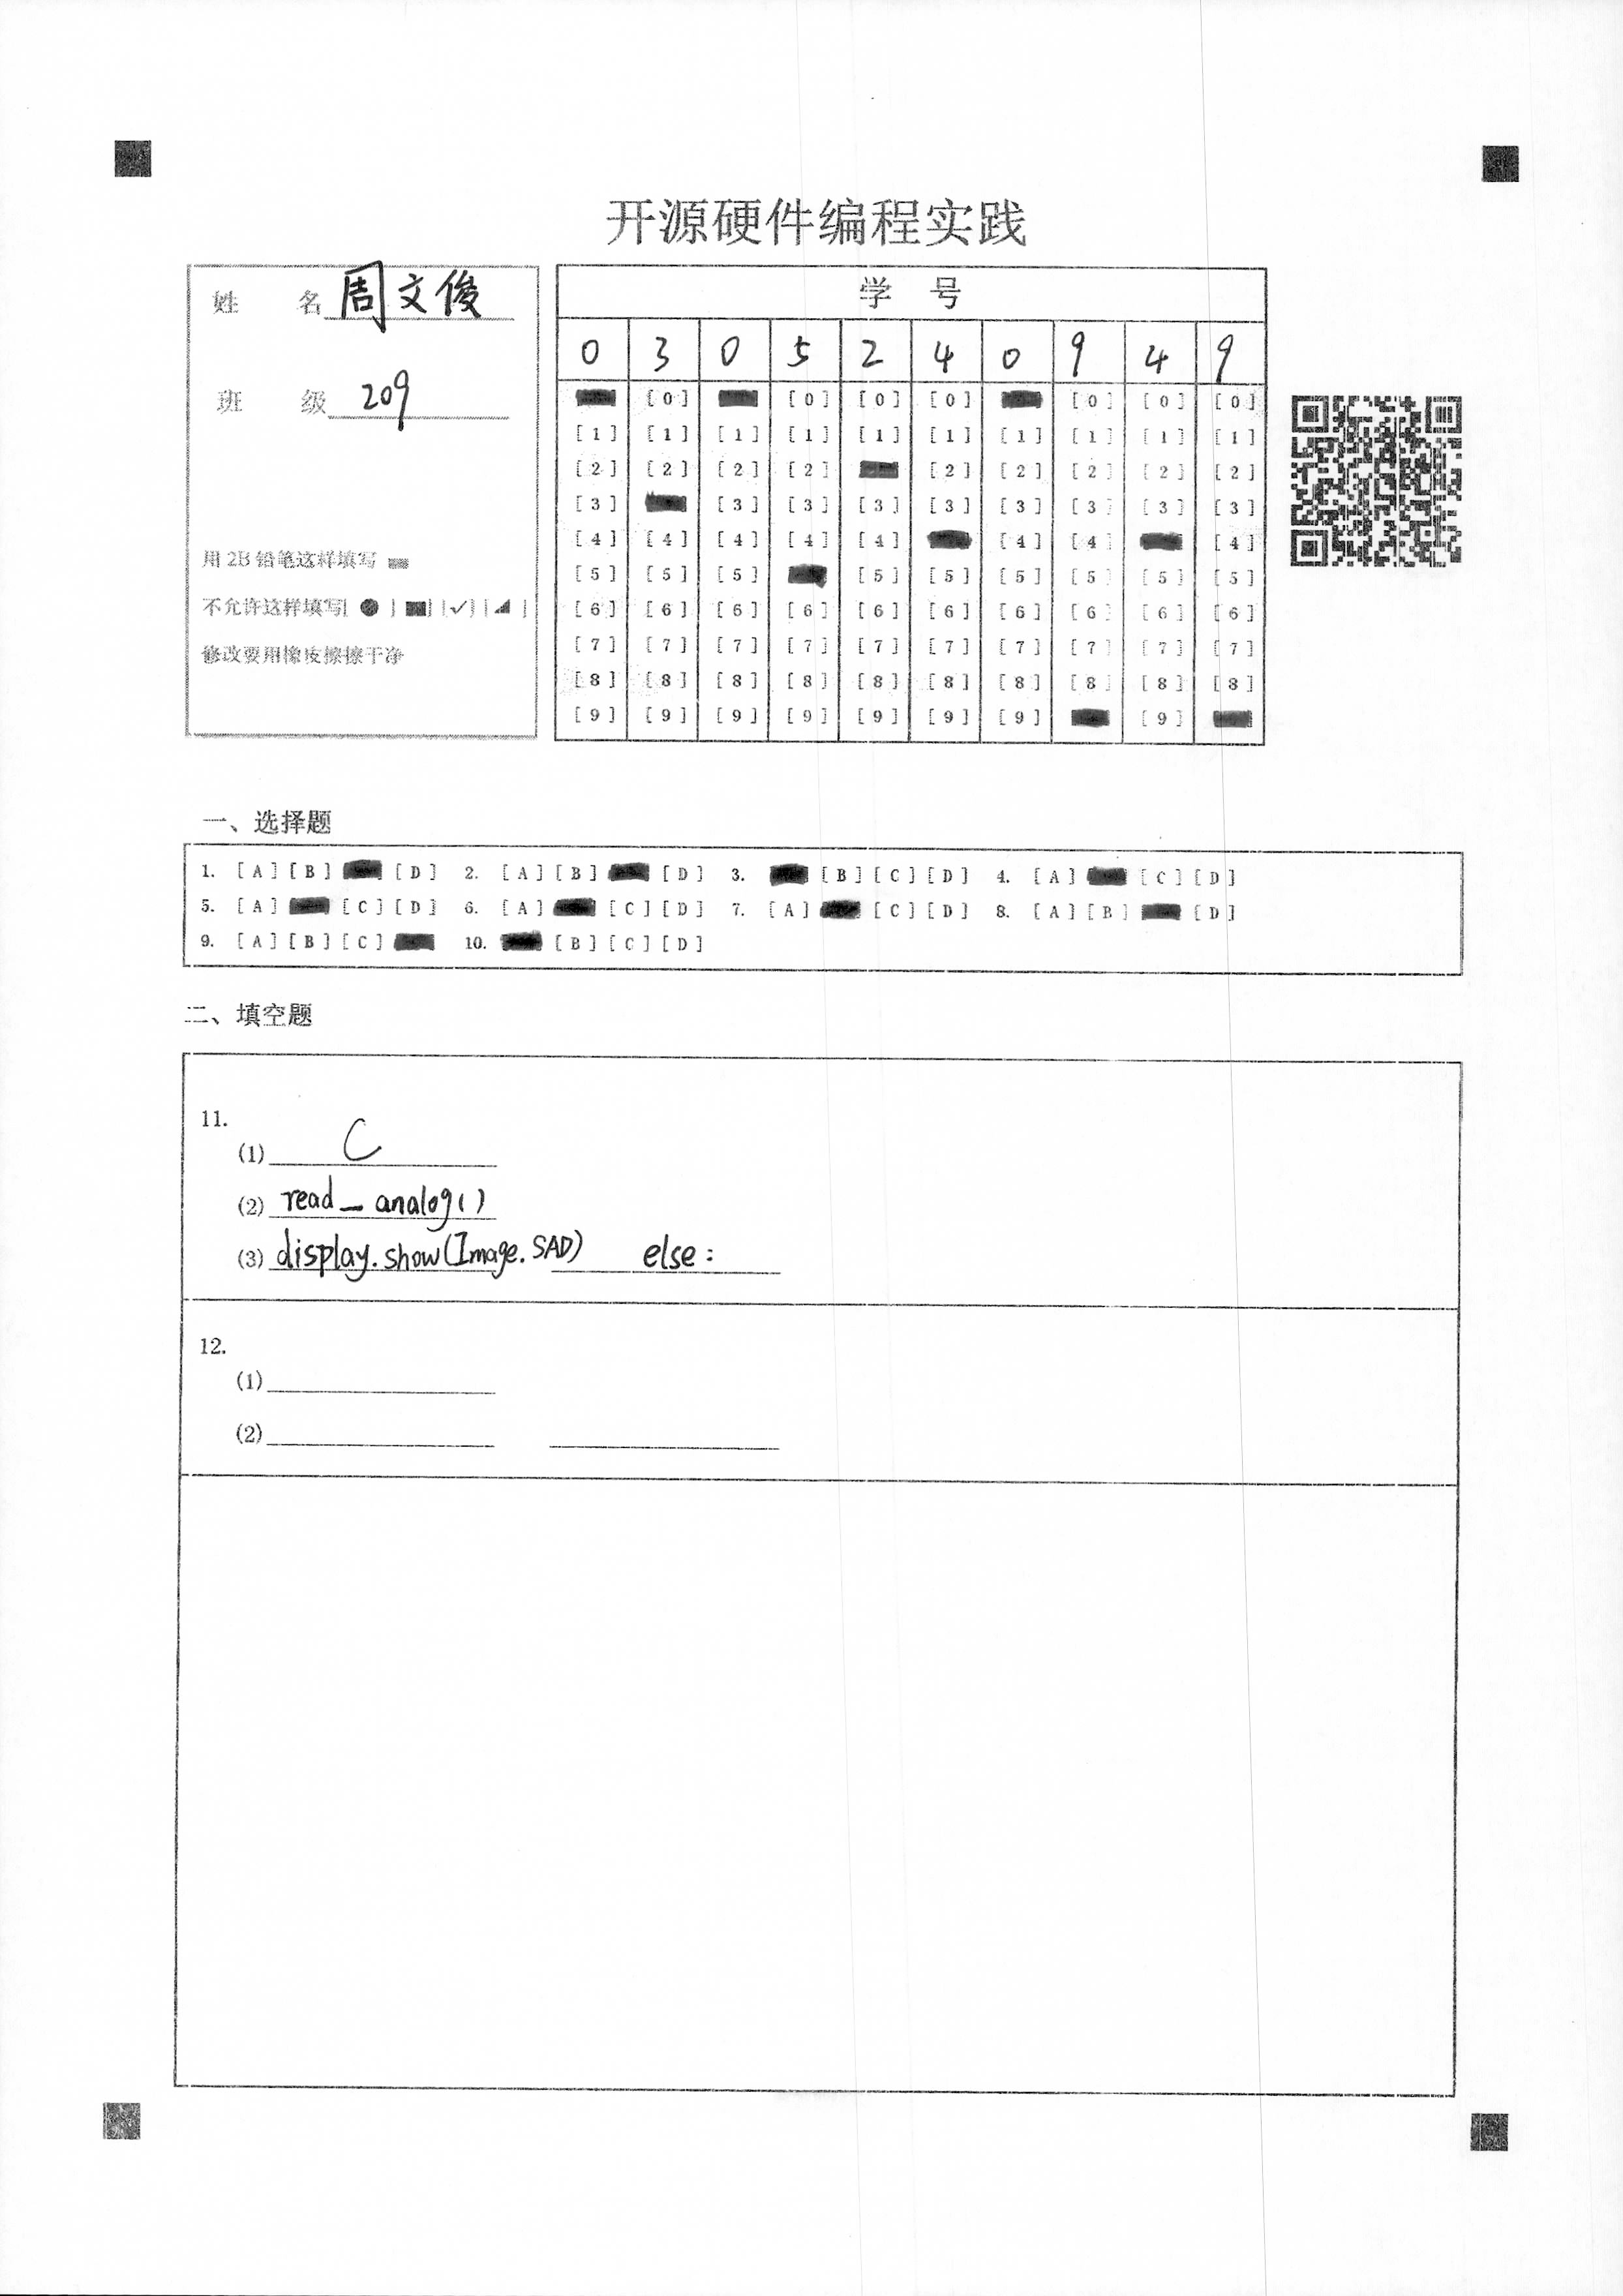 开源硬件编程实践
姓 名 周文俊
班 级 209
用 2B 铅笔这样填写
不允许这样填写[ ● ] [■] [✓] [◢ ]
修改要用橡皮擦擦干净
学 号
0 3 0 5 2 4 0 9 4 9
[0] [0] [0] [0] [0] [0] [0]
[1] [1] [1] [1] [1] [1] [1] [1] [1] [1]
[2] [2] [2] [2] [2] [2] [2] [2] [2]
[3] [3] [3] [3] [3] [3] [3] [3] [3]
[4] [4] [4] [4] [4] [4] [4] [4]
[5] [5] [5] [5] [5] [5] [5] [5] [5]
[6] [6] [6] [6] [6] [6] [6] [6] [6] [6]
[7] [7] [7] [7] [7] [7] [7] [7] [7] [7]
[8] [8] [8] [8] [8] [8] [8] [8] [8] [8]
[9] [9] [9] [9] [9] [9] [9] [9]
一、选择题
1. [A] [B] [D] 2. [A] [B] [D] 3. [B] [C] [D] 4. [A] [C] [D]
5. [A] [C] [D] 6. [A] [C] [D] 7. [A] [C] [D] 8. [A] [B] [D]
9. [A] [B] [C] 10. [B] [C] [D]
二、填空题
11.
(1) C
(2) read_analog()
(3) display.show(Image.SAD) else:
12.
(1)
(2)